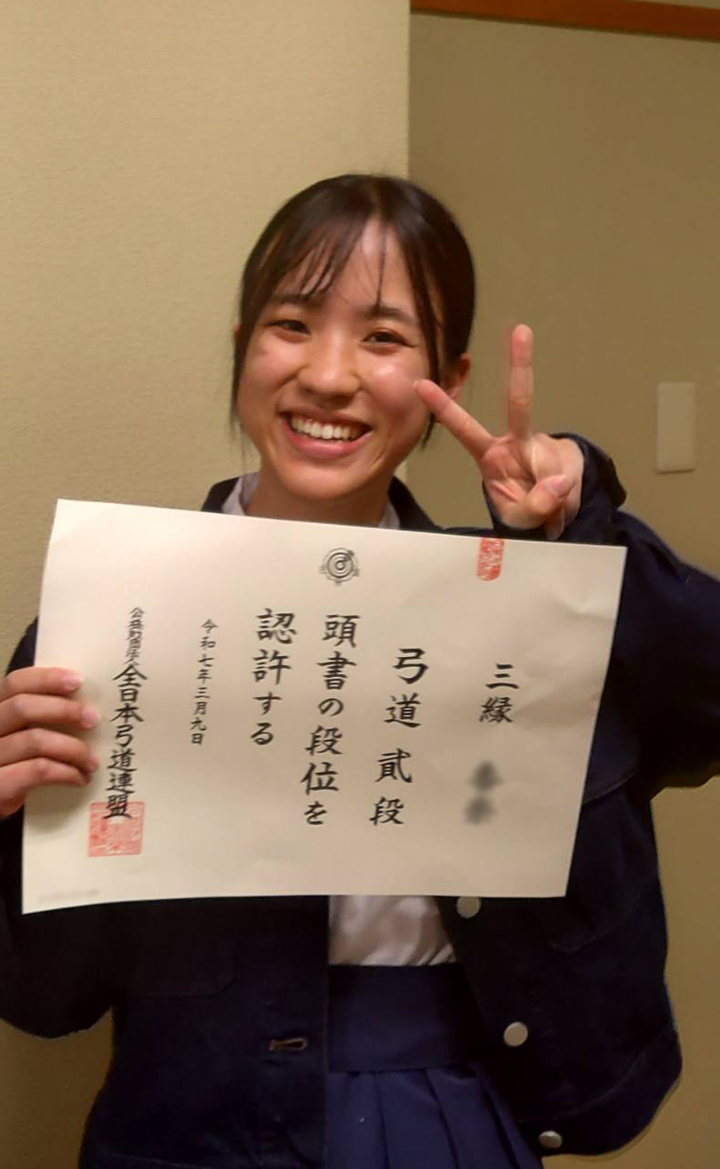 三縁
弓道 貳段
頭書の段位を
認許する
令和七年三月九日
公益財団法人全日本弓道連盟